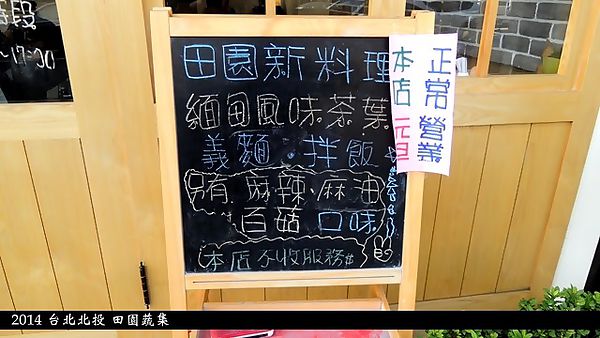 時段
~17:00
田園新料理
緬甸風味茶葉
義麵·拌飯
麻辣、麻油
百菇 口味
本店不收服務
正常營業
本店元旦
2014 台北北投 田園蔬集